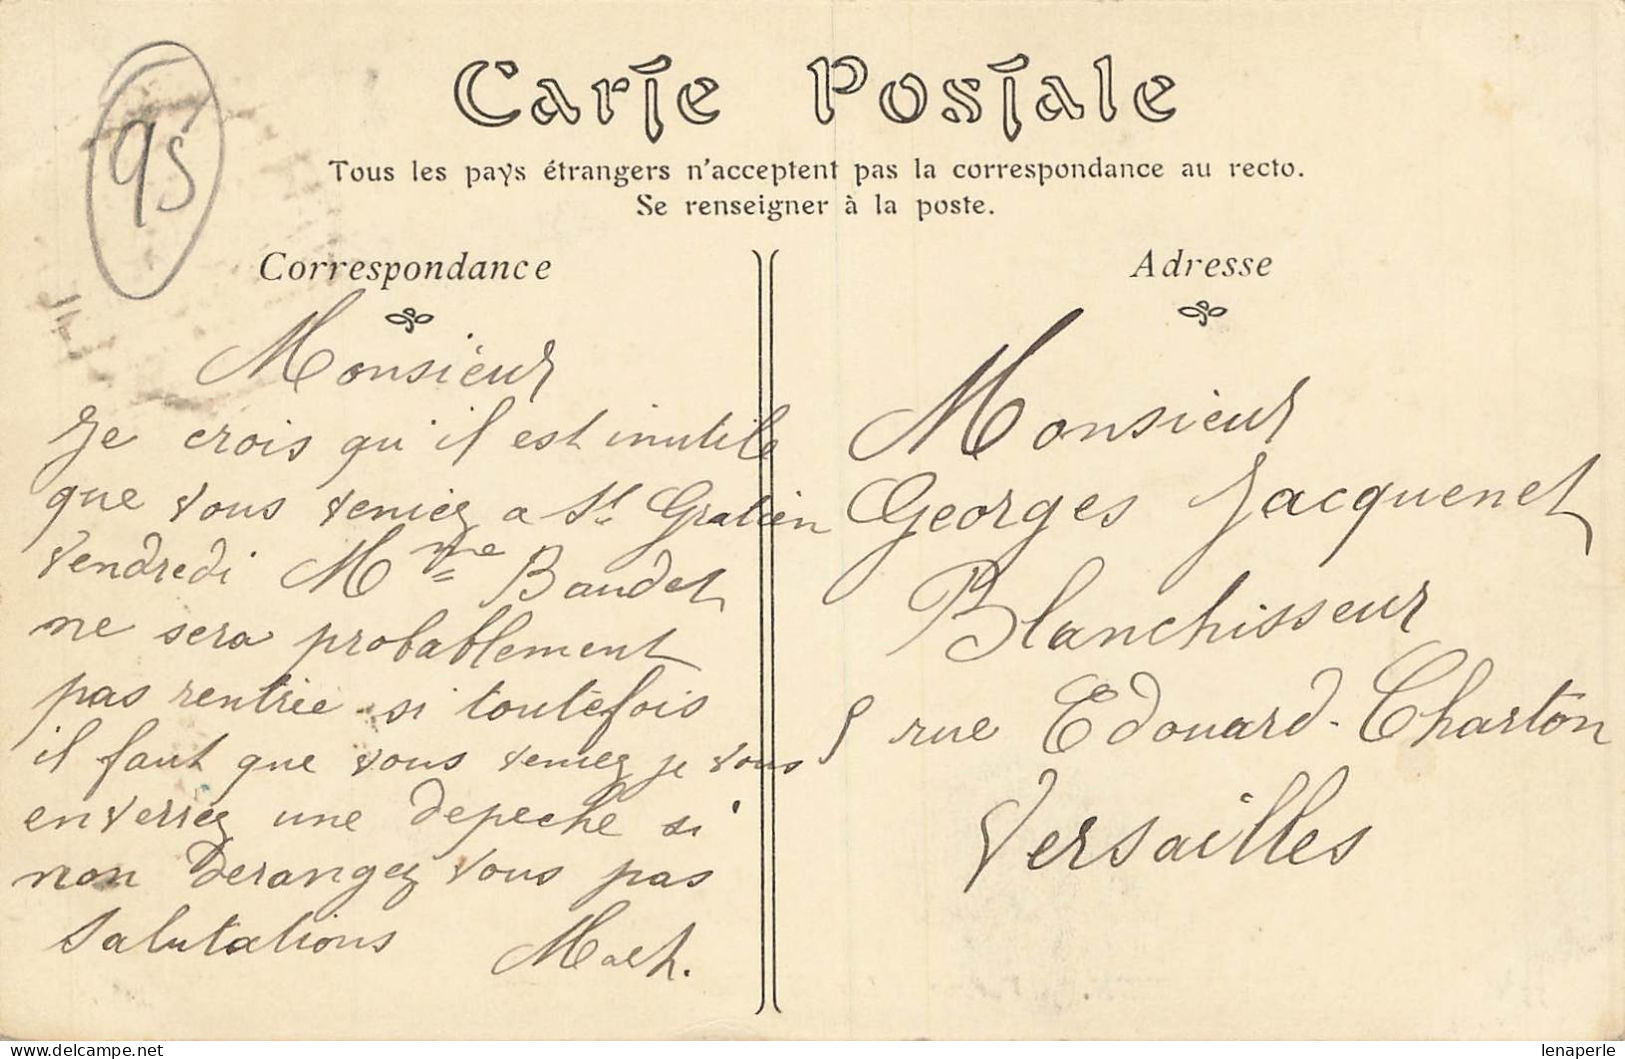 95
Carte Postale
Tous les pays étrangers n'acceptent pas la correspondance au recto.
Se renseigner à la poste.
Correspondance
Monsieur
Je crois qu'il est inutile
que vous veniez a St Gratien
Vendredi Mme Baudet
ne sera probablement
pas rentrée si toutefois
il faut que vous veniez je vous
enverrez une depeche si
non Derangez vous pas
Salutations
Adresse
Monsieur
Georges Jacquenet
Blanchisseur
rue Edouard-Charton
Versailles
delcampe.net
lenaperle